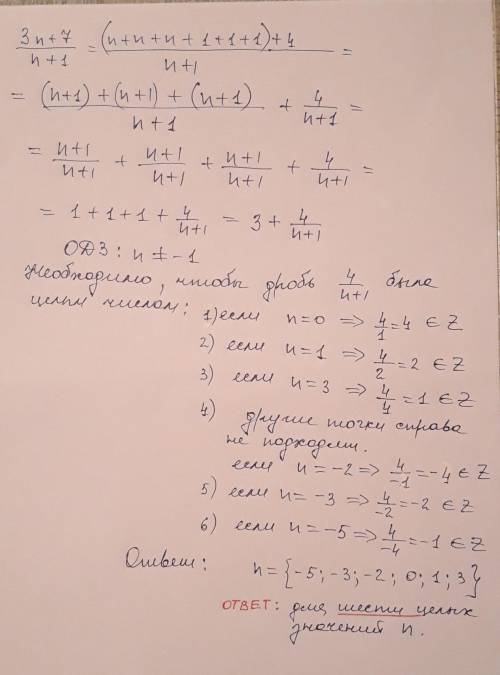 (3n+7)/(n+1) = ((n+n+n+1+1+1)+4)/(n+1) =
= ((n+1)+(n+1)+(n+1))/(n+1) + 4/(n+1) =
= (n+1)/(n+1) + (n+1)/(n+1) + (n+1)/(n+1) + 4/(n+1) =
= 1+1+1+ 4/(n+1) = 3 + 4/(n+1)
ОДЗ: n ≠ -1
Необходимо, чтобы дробь 4/(n+1) была
целым числом: 1) если n=0 => 4/1 = 4 ∈ Z
2) если n=1 => 4/2 = 2 ∈ Z
3) если n=3 => 4/4 = 1 ∈ Z
4) другие точки справа
не подходят.
если n=-2 => 4/-1 = -4 ∈ Z
5) если n=-3 => 4/-2 = -2 ∈ Z
6) если n=-5 => 4/-4 = -1 ∈ Z
Ответ: n={-5; -3; -2; 0; 1; 3}
ОТВЕТ: для шести целых
значений n.